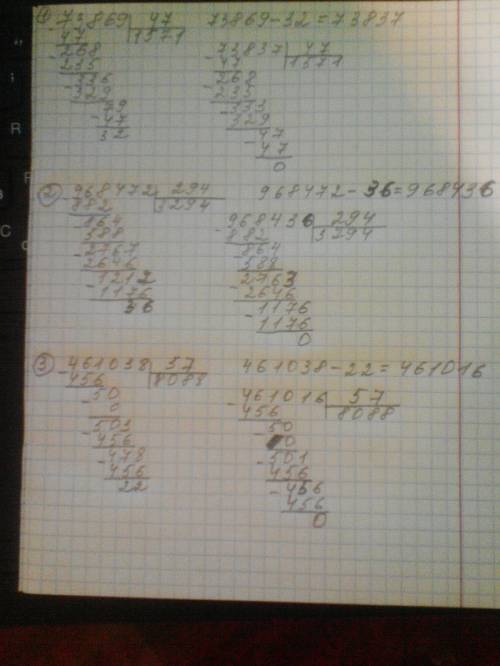 1) 73869 | 47    73869-32=73837
-47 | 1571
-268    73837 | 47
235    -47 | 1571
-336    -268
329    235
-79    -333
-47    329
32    -47
47
0
2) -968472 | 294    968472-36=968436
882 | 3294
-864    -968436 | 294
588    882 | 3294
-2767    -864
2646    588
-1212    2763
-1176    -2646
36    -1176
-1176
0
3) -461038 | 57    461038-22=461016
456 | 8088
-50    -461016 | 57
0    456 | 8088
-503    -50
456    0
-478    -501
456    456
22    -456
456
0